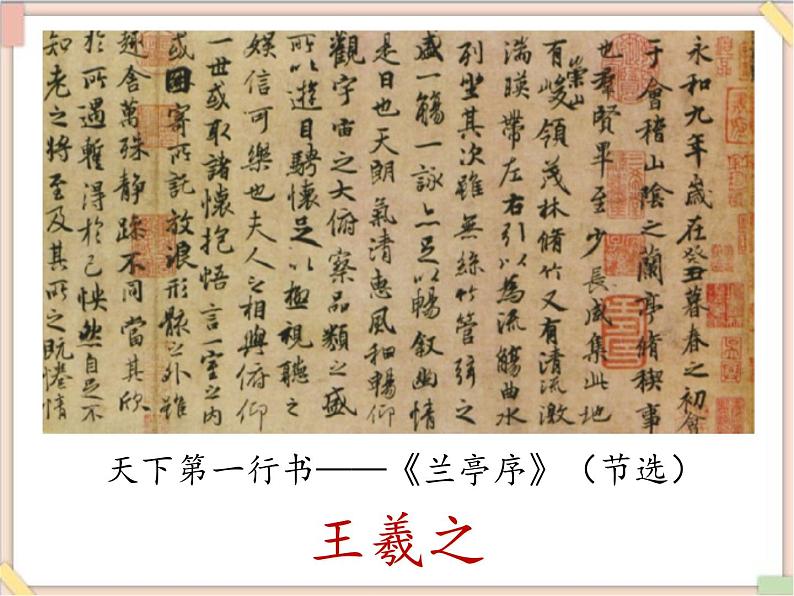 永和九年歲在癸丑暮春之初會
于會稽山陰之蘭亭脩稧事
也羣賢畢至少長咸集此地
有崇山峻領茂林脩竹又有清流激
湍暎帶左右引以為流觴曲水
列坐其次雖無絲竹管弦之
盛一觴一詠亦足以暢叙幽情
是日也天朗氣清惠風和暢仰
觀宇宙之大俯察品類之盛
所以遊目騁懷足以極視聽之
娛信可樂也夫人之相與俯仰
一世或取諸懷抱悟言一室之內
或因寄所託放浪形骸之外雖
趣舍萬殊靜躁不同當其欣
於所遇暫得於己怏然自足不
知老之將至及其所之既惓情
天下第一行书——《兰亭序》（节选）
王羲之